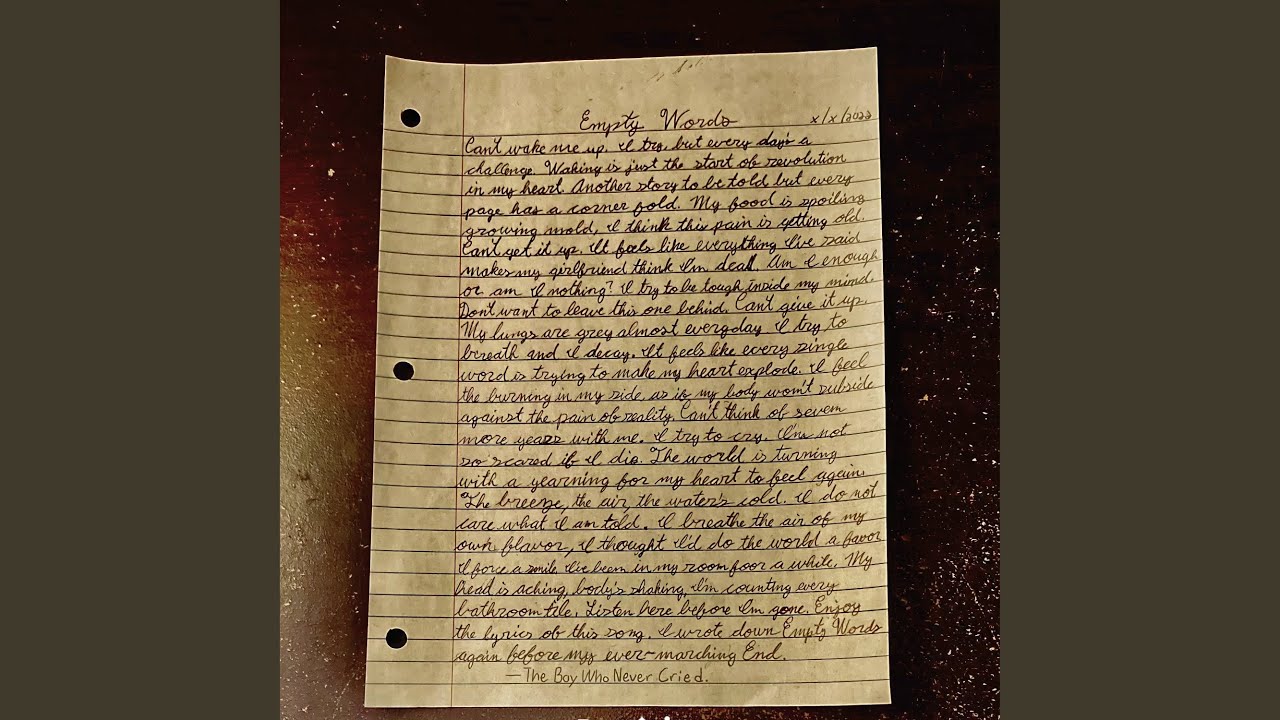 Empty Words
x/x/2022
Can't wake me up. I try, but every day's a
challenge. Waking is just the start of revolution
in my heart. Another story to be told but every
page has a corner fold. My food is spoiling
growing mold, I think this pain is getting old.
Can't get it up. It feels like everything I've said
makes my girlfriend think I'm dead. Am I enough
or am I nothing? I try to be tough inside my mind.
Don't want to leave this one behind. Can't give it up.
My lungs are grey almost everyday I try to
breath and I decay. It feels like every single
word is trying to make my heart explode. I feel
the burning in my side as if my body won't subside
against the pain of reality. Can't think of seven
more years with me. I try to cry. I'm not
so scared if I die. The world is turning
with a yearning for my heart to feel again.
The breeze, the air, the water's cold. I do not
care what I am told. I breathe the air of my
own flavor, I thought I'd do the world a favor
I force a smile I've been in my room foor a while. My
head is aching, body's shaking, I'm counting every
bathroom tile. Listen here before I'm gone. Enjoy
the lyrics of this song. I wrote down Empty Words
again before my ever-marching End.
—The Boy Who Never Cried.